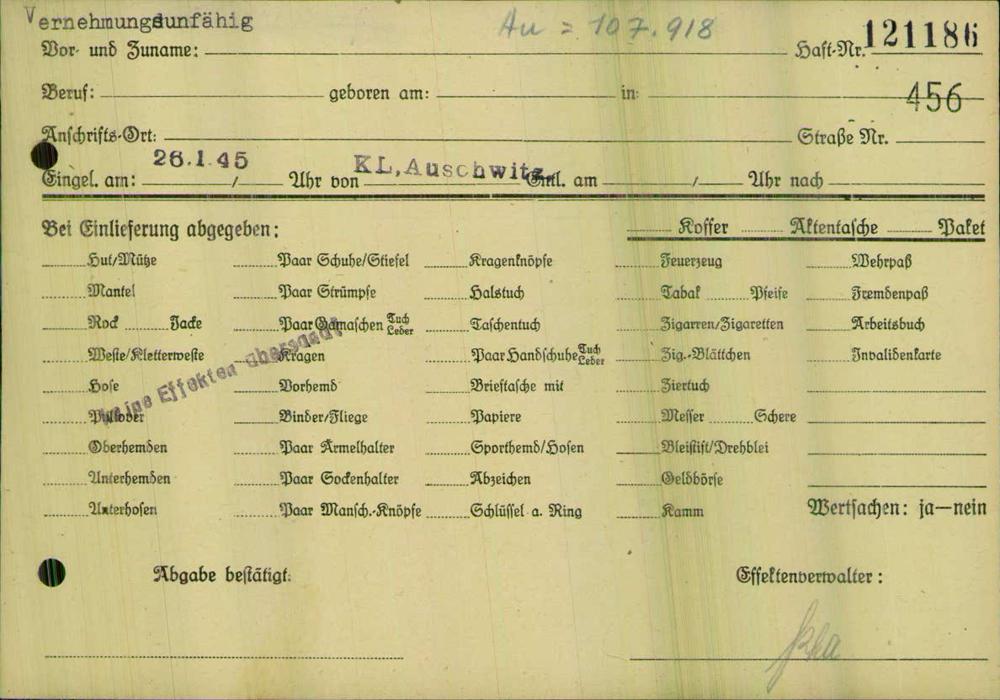 Vernehmungsunfähig
Au = 107.918
Vor- und Zuname: Haft-Nr. 121186
Beruf: geboren am: in: 456
Anschrifts-Ort: Straße Nr.
26.1.45 KL, Auschwitz
Eingel. am: / Uhr von Entl. am / Uhr nach
Bei Einlieferung abgegeben: Koffer Aktentasche Paket
Hut/Mütze Paar Schuhe/Stiefel Kragenknöpfe Feuerzeug Wehrpaß
Mantel Paar Strümpfe Halstuch Tabak Pfeife Fremdenpaß
Rock Jacke Paar Gamaschen Tuch Leder Taschentuch Zigarren/Zigaretten Arbeitsbuch
Weste/Kletterweste Kragen Paar Handschuhe Tuch Leder Zig.-Blättchen Invalidenkarte
keine Effekten übersandt
Hose Vorhemd Brieftasche mit Ziertuch
Pullover Binder/Fliege Papiere Messer Schere
Oberhemden Paar Ärmelhalter Sporthemd/Hosen Bleistift/Drehblei
Unterhemden Paar Sockenhalter Abzeichen Geldbörse
Unterhosen Paar Mansch.-Knöpfe Schlüssel a. Ring Kamm Wertsachen: ja—nein
Abgabe bestätigt: Effektenverwalter: